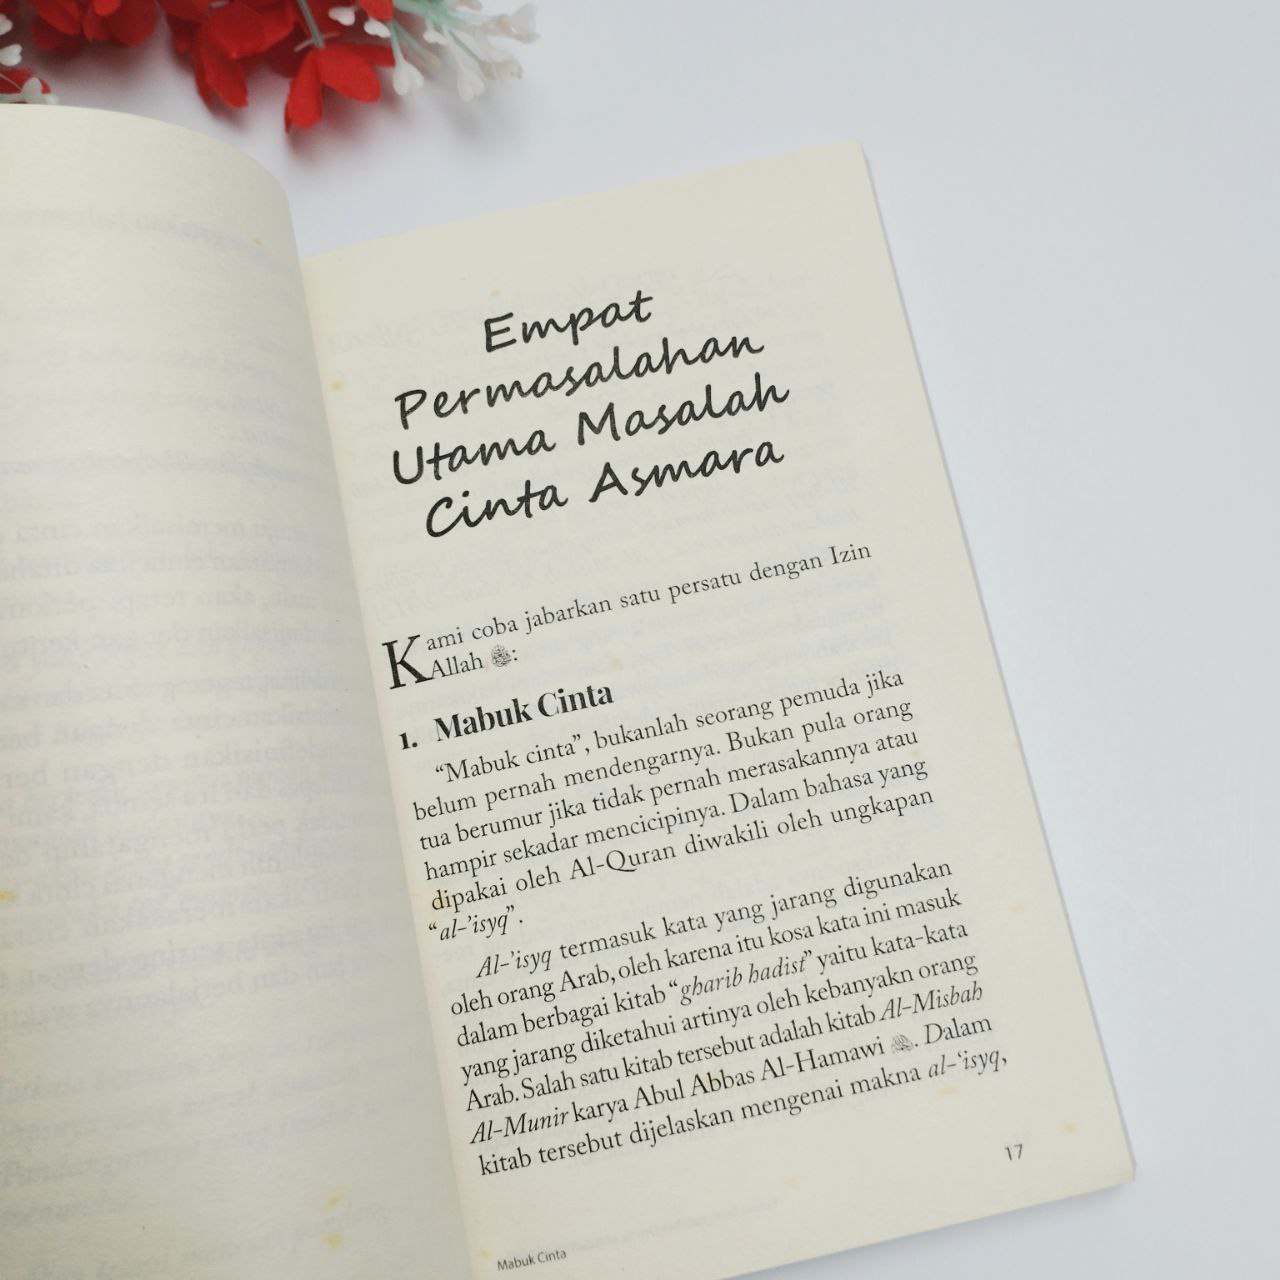 Empat
Permasalahan
Utama Masalah
Cinta Asmara
Kami coba jabarkan satu persatu dengan Izin
Allah ﷻ:
1. Mabuk Cinta
“Mabuk cinta”, bukanlah seorang pemuda jika
belum pernah mendengarnya. Bukan pula orang
tua berumur jika tidak pernah merasakannya atau
hampir sekadar mencicipinya. Dalam bahasa yang
dipakai oleh Al-Quran diwakili oleh ungkapan
“al-’isyq”.
Al-’isyq termasuk kata yang jarang digunakan
oleh orang Arab, oleh karena itu kosa kata ini masuk
dalam berbagai kitab “gharib hadist” yaitu kata-kata
yang jarang diketahui artinya oleh kebanyakn orang
Arab. Salah satu kitab tersebut adalah kitab Al-Misbah
Al-Munir karya Abul Abbas Al-Hamawi. Dalam
kitab tersebut dijelaskan mengenai makna al-‘isyq,
17
Mabuk Cinta